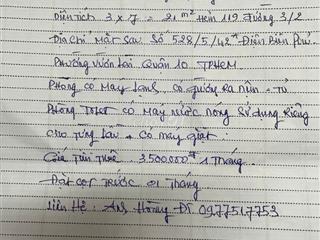 Diện tích 3 x 7 = 21 m² hẻm 119 đường 3/2
Địa chỉ mặt sau số 528/5/42 Điện Biên Phủ.
Phường Vườn Lài Quận 10 TPHCM
Phòng có máy lạnh, có giường ra nệm + Tủ
Phòng Tolet có máy nước nóng sử dụng riêng
cho từng lầu + có máy giặt.
Giá tiền thuê 3500000đ 1 tháng.
Đặt cọc trước 01 tháng
Liên Hệ: Anh Hoàng ĐT. 0977517753